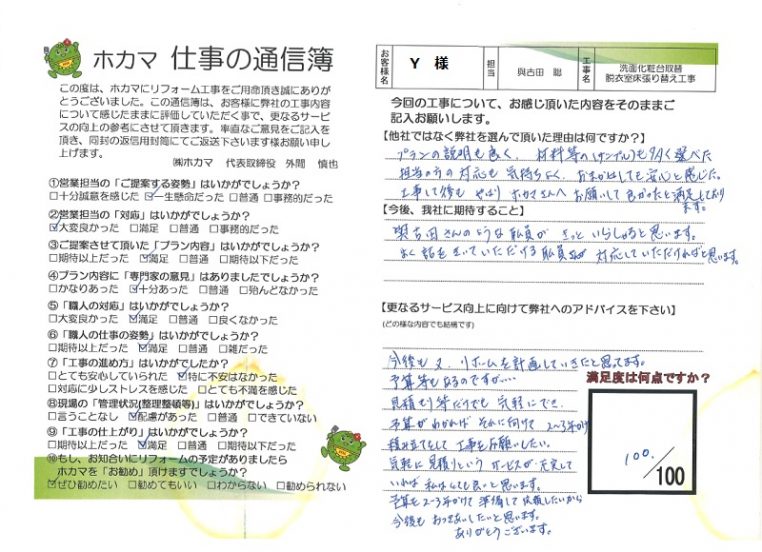 ホカマ 仕事の通信簿
この度は、ホカマにリフォーム工事をご用命頂き誠にありが
とうございました。この通信簿は、お客様に弊社の工事内容
について感じたままに評価していただく事で、更なるサービ
スの向上の参考にさせて頂きます。率直なご意見をご記入を
頂き、同封の返信用封筒にてご返送下さいます様お願い申し
上げます。
㈱ホカマ 代表取締役 外間 慎也
①営業担当の「ご提案する姿勢」はいかがでしょうか?
□十分誠意を感じた ☑一生懸命だった □普通 □事務的だった
②営業担当の「対応」はいかがでしょうか?
☑大変良かった □満足 □普通 □事務的だった
③ご提案させて頂いた「プラン内容」はいかがでしょうか?
□期待以上だった ☑満足 □普通 □期待以下だった
④プラン内容に「専門家の意見」はありましたでしょうか?
□かなりあった ☑十分あった □普通 □殆んどなかった
⑤「職人の対応」はいかがでしょうか?
□大変良かった ☑満足 □普通 □良くなかった
⑥「職人の仕事の姿勢」はいかがでしょうか?
□期待以上だった ☑満足 □普通 □雑だった
⑦「工事の進め方」はいかがでしたか?
□とても安心していられた ☑特に不安はなかった
□対応に少しストレスを感じた □とても不満を感じた
⑧現場の「管理状況(整理整頓等)」はいかがでしょうか?
□言うことなし ☑配慮があった □普通 □できていない
⑨「工事の仕上がり」はいかがでしょうか?
□期待以上だった ☑満足 □普通 □期待以下だった
⑩もし、お知合いにリフォームの予定がありましたら
ホカマを「お勧め」頂けますでしょうか?
☑ぜひ勧めたい □勧めてもいい □わからない □勧められない
お客様名 Y 様 担当 與古田 聡 工事名 洗面化粧台取替
脱衣室床張り替え工事
今回の工事について、お感じ頂いた内容をそのままご
記入お願いします。
【他社ではなく弊社を選んで頂いた理由は何ですか?】
プランの説明も良く、材料等の(サンプル)も多く選べた
担当の方の対応も気持ちよく、おまかせしても安心と感じた。
工事して後も やはり ホカマさんへ お願いして良かったと満足しており
ます。
【今後、我社に期待すること】
與古田さんのような職員が きっと いらっしゃると思います。
よく話をきいていただける職員が 対応していただければと思います。
【更なるサービス向上に向けて弊社へのアドバイスを下さい】
(どの様な内容でも結構です)
今後も又、リホームを計画していきたと思ってます。
予算等もあるのですが‥‥
見積もり等だけでも 気軽にでき、
予算がわかれば それに向けて 2~3年かけ
積み立てをして 工事をお願いしたい。
気軽に見積りという サービスが 充実して
いれば 私はとても良いと思います。
予算も2~3年かけて 準備して 依頼したいから
今後も おつきあいしたいと思います。
ありがとうございます。
満足度は何点ですか?
100. /100